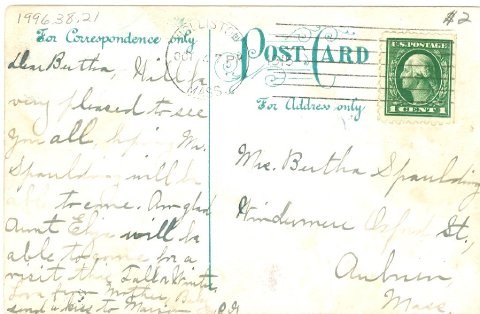 1996.38.21
$2
For Correspondence only
POST CARD
For Address only
U.S. POSTAGE
1 CENT 1
OCT
MASS.
Dear Bertha, Will be
very pleased to see
you all, hope Mr.
Spaulding will be
able to come. Am glad
Aunt Eliza will be
able to come for a
visit this Fall or Winter
Love from Mother,
send a kiss to
Mrs. Bertha Spaulding
Windermere Oxford St.,
Auburn
Mass.